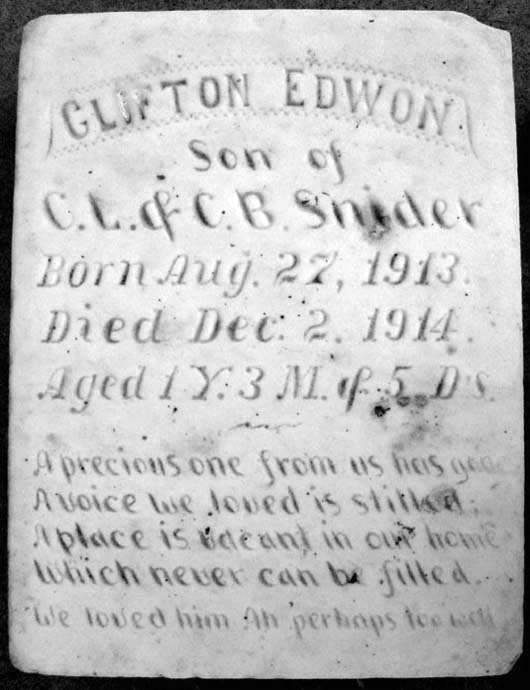 CLIFTON EDWON.
Son of
C. L. & C. B. Snider
Born Aug. 27, 1913.
Died Dec. 2. 1914.
Aged 1 Y. 3 M. & 5 D's.
A precious one from us has gone
A voice we loved is stilled;
A place is vacant in our home
Which never can be filled.
We loved him Ah perhaps too well